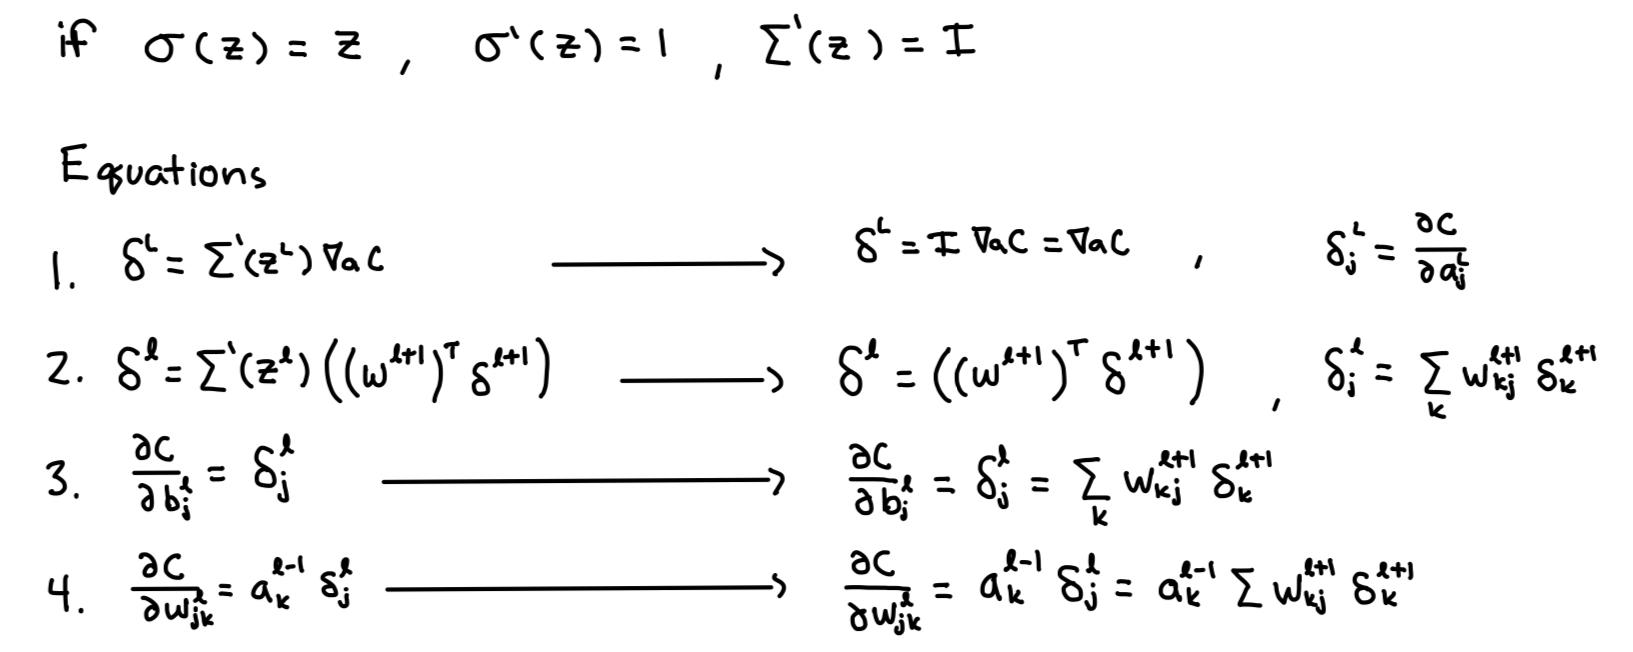 if σ(z) = z , σ'(z) = 1 , Σ'(z) = I
Equations
1. δ^L = Σ'(z^L) ∇aC ⟶ δ^L = I ∇aC = ∇aC , δ_j^L = ∂C/∂a_j^L
2. δ^l = Σ'(z^l) ((w^{l+1})^T δ^{l+1}) ⟶ δ^l = ((w^{l+1})^T δ^{l+1}) , δ_j^l = Σ_k w_{kj}^{l+1} δ_k^{l+1}
3. ∂C/∂b_j^l = δ_j^l ⟶ ∂C/∂b_j^l = δ_j^l = Σ_k w_{kj}^{l+1} δ_k^{l+1}
4. ∂C/∂w_{jk}^l = a_k^{l-1} δ_j^l ⟶ ∂C/∂w_{jk}^l = a_k^{l-1} δ_j^l = a_k^{l-1} Σ w_{kj}^{l+1} δ_k^{l+1}